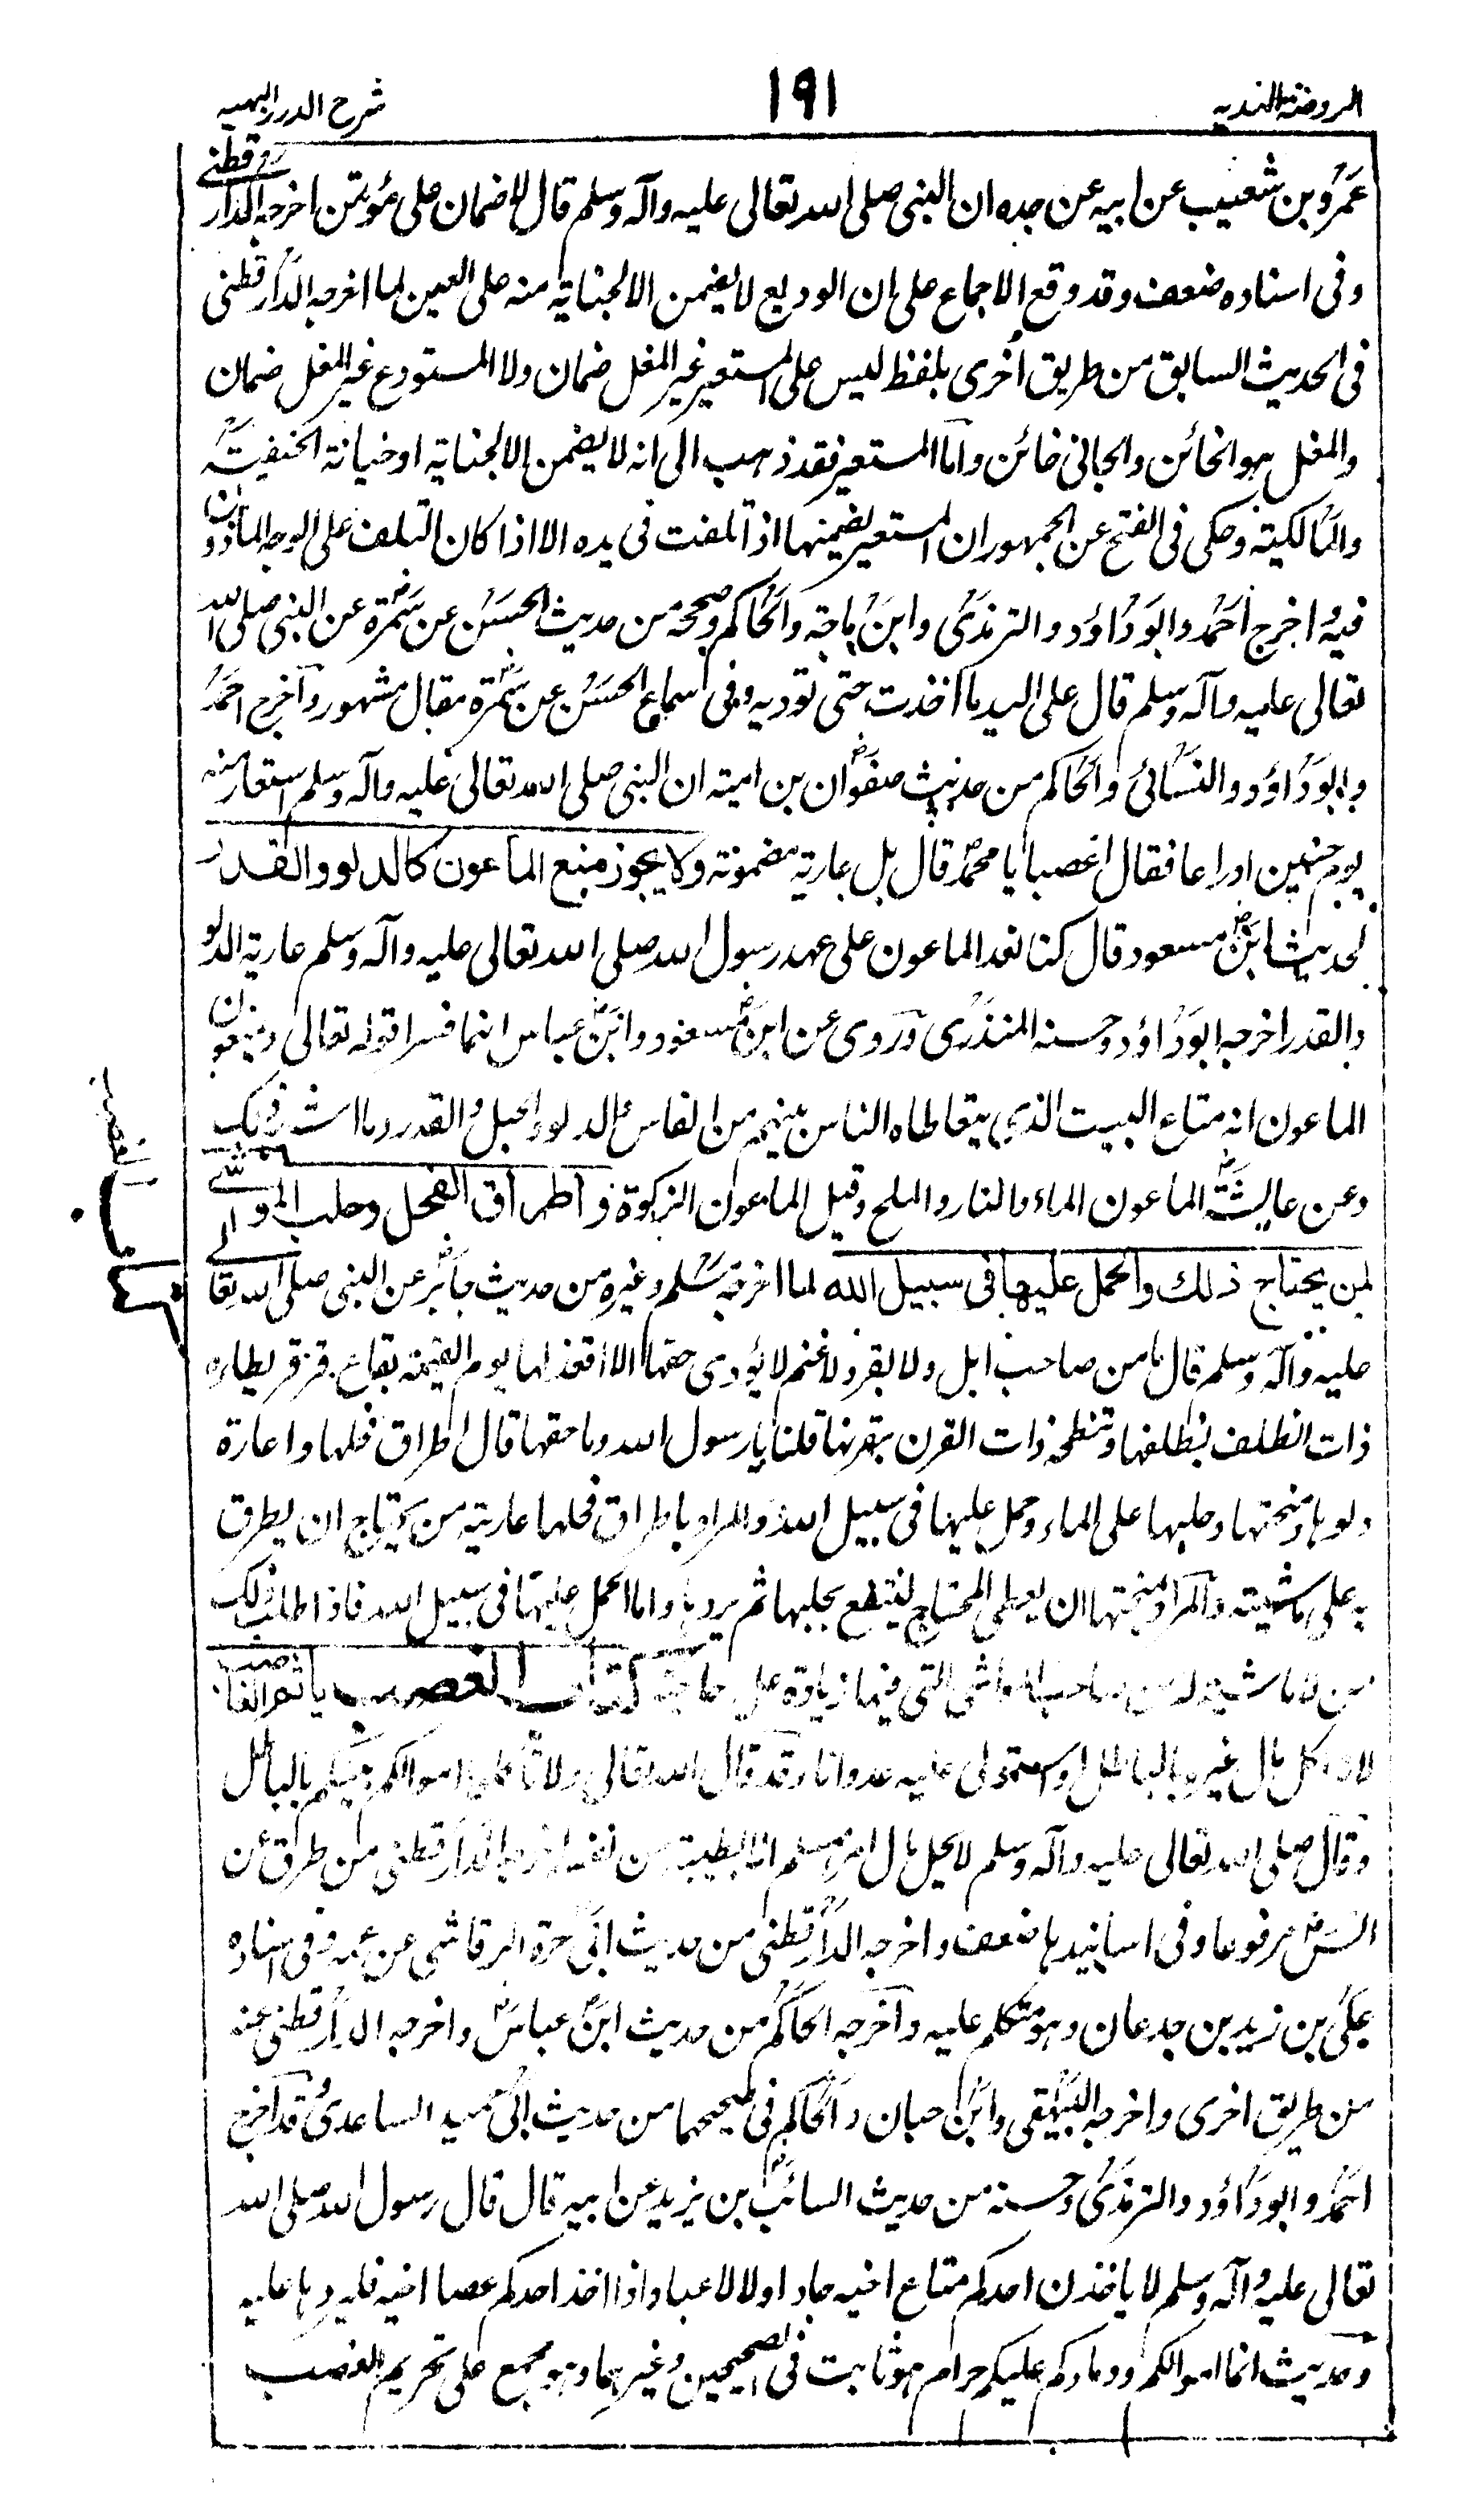 الروضة الندية ١٩١ شرح الدرر البهية
عمرو بن شعيب عن ابيه عن جده ان النبى صلى الله تعالى عليه وآله وسلم قال لا ضمان على مؤتمن اخرجه الدارقطنى
وفى اسناده ضعف وقد وقع الاجماع على ان الوديع لا يضمن الا لجناية منه على العين لما اخرجه الدارقطنى
فى الحديث السابق من طريق أخرى بلفظ ليس على المستعير غير المغل ضمان ولا المستودع غير المغل ضمان
والمغل هو الخائن والجانى خائن واما المستعير فقد ذهب الى انه لا يضمن الا لجناية او خيانة الحنفية
والمالكية وحكى فى الفتح عن الجمهور ان المستعير يضمنها اذا تلفت فى يده الا اذا كان التلف على الوجه الماذون
فيه اخرج احمد وابو داؤد والترمذى وابن ماجة والحاكم وصححه من حديث الحسن عن سمرة عن النبى صلى الله
تعالى عليه وآله وسلم قال على اليد ما اخذت حتى تؤديه وفى سماع الحسن عن سمرة مقال مشهور واخرج احمد
وابو داؤد والنسائى والحاكم من حديث صفوان بن امية ان النبى صلى الله تعالى عليه وآله وسلم استعار منه
يوم حنين ادراعا فقال اغصبا يا محمد قال بل عارية مضمونة ولا يجوز منع الماعون كالدلو والقدر
لحديث ابن مسعود قال كنا نعد الماعون على عهد رسول الله صلى الله تعالى عليه وآله وسلم عارية الدلو
والقدر اخرجه ابو داؤد وحسنه المنذرى وروى عن ابن مسعود وابن عباس انهما فسرا قوله تعالى ويمنعون
الماعون انه متاع البيت الذى يتعاطاه الناس بينهم من الفاس والدلو والحبل والقدر وما اشبه ذلك
وعن عائشة الماعون الماء والنار والملح وقيل الماعون الزكوة واطراق الفحل وحلب المواشى
لمن يحتاج ذلك والحمل عليها فى سبيل الله لما اخرجه مسلم وغيره من حديث جابر عن النبى صلى الله تعالى
عليه وآله وسلم قال ما من صاحب ابل ولا بقر ولا غنم لا يؤدى حقها الا اقعد لها يوم القيمة بقاع قرقر يطاره
ذات الظلف بظلفها وتنطحه ذات القرن بقرنها قلنا يا رسول الله وما حقها قال اطراق فحلها واعارة
دلوها ومنحتها وحلبها على الماء وحمل عليها فى سبيل الله والمراد باطراق فحلها عارية من يحتاج ان يطرق
به على ماشيته والمراد بمنحتها ان يعطى المحتاج لينتفع بحلبها ثم يردها واما الحمل عليها فى سبيل الله فاذا طلب ذلك
من لا ماشية له من صاحب المواشى التى فيها زيادة على حاجته كتاب الغصب ياثم الغاصب
لانه اكل مال غيره بالباطل او استولى عليه عدوانا وقد قال الله تعالى ولا تاكلوا اموالكم بينكم بالباطل
وقال صلى الله تعالى عليه وآله وسلم لا يحل مال امرئ مسلم الا بطيبة من نفسه اخرجه الدارقطنى من طرق عن
انس مرفوعا وفى اسانيدها ضعف واخرجه الدارقطنى من حديث ابى حرة الرقاشى عن عمه وفى اسناده
على بن زيد بن جدعان وهو متكلم عليه واخرجه الحاكم من حديث ابن عباس واخرجه الدارقطنى عنه
من طريق اخرى واخرجه البيهقى وابن حبان والحاكم فى صحيحهما من حديث ابى حميد الساعدى وقد اخرج
احمد وابو داؤد والترمذى وحسنه من حديث السائب بن يزيد عن ابيه قال قال رسول الله صلى الله
تعالى عليه وآله وسلم لا ياخذن احدكم متاع اخيه جادا ولا لاعبا واذا اخذ احدكم عصا اخيه فليردها عليه
وحديث انما اموالكم ودماؤكم عليكم حرام هو ثابت فى الصحيحين وغيرهما وهو مجمع على تحريم الغصب